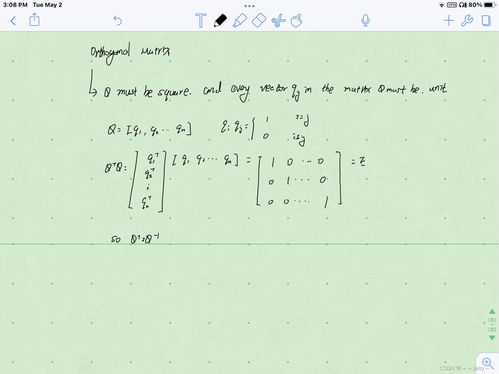 3:08 PM Tue May 2
80%
Orthogonal Matrix
↳ Q must be square. and every vector qj in the matrix Q must be. unit
Q = [q1, q2 ... qn] qi qj = { 1 i=j
0 i≠j
QᵀQ = [ q1ᵀ q2ᵀ ⋮ qnᵀ ] [q1 q2 ... qn] = [ 1 0 ... 0
0 1 ... 0
0 0 ... 1 ] = I
so Qᵀ=Q⁻¹